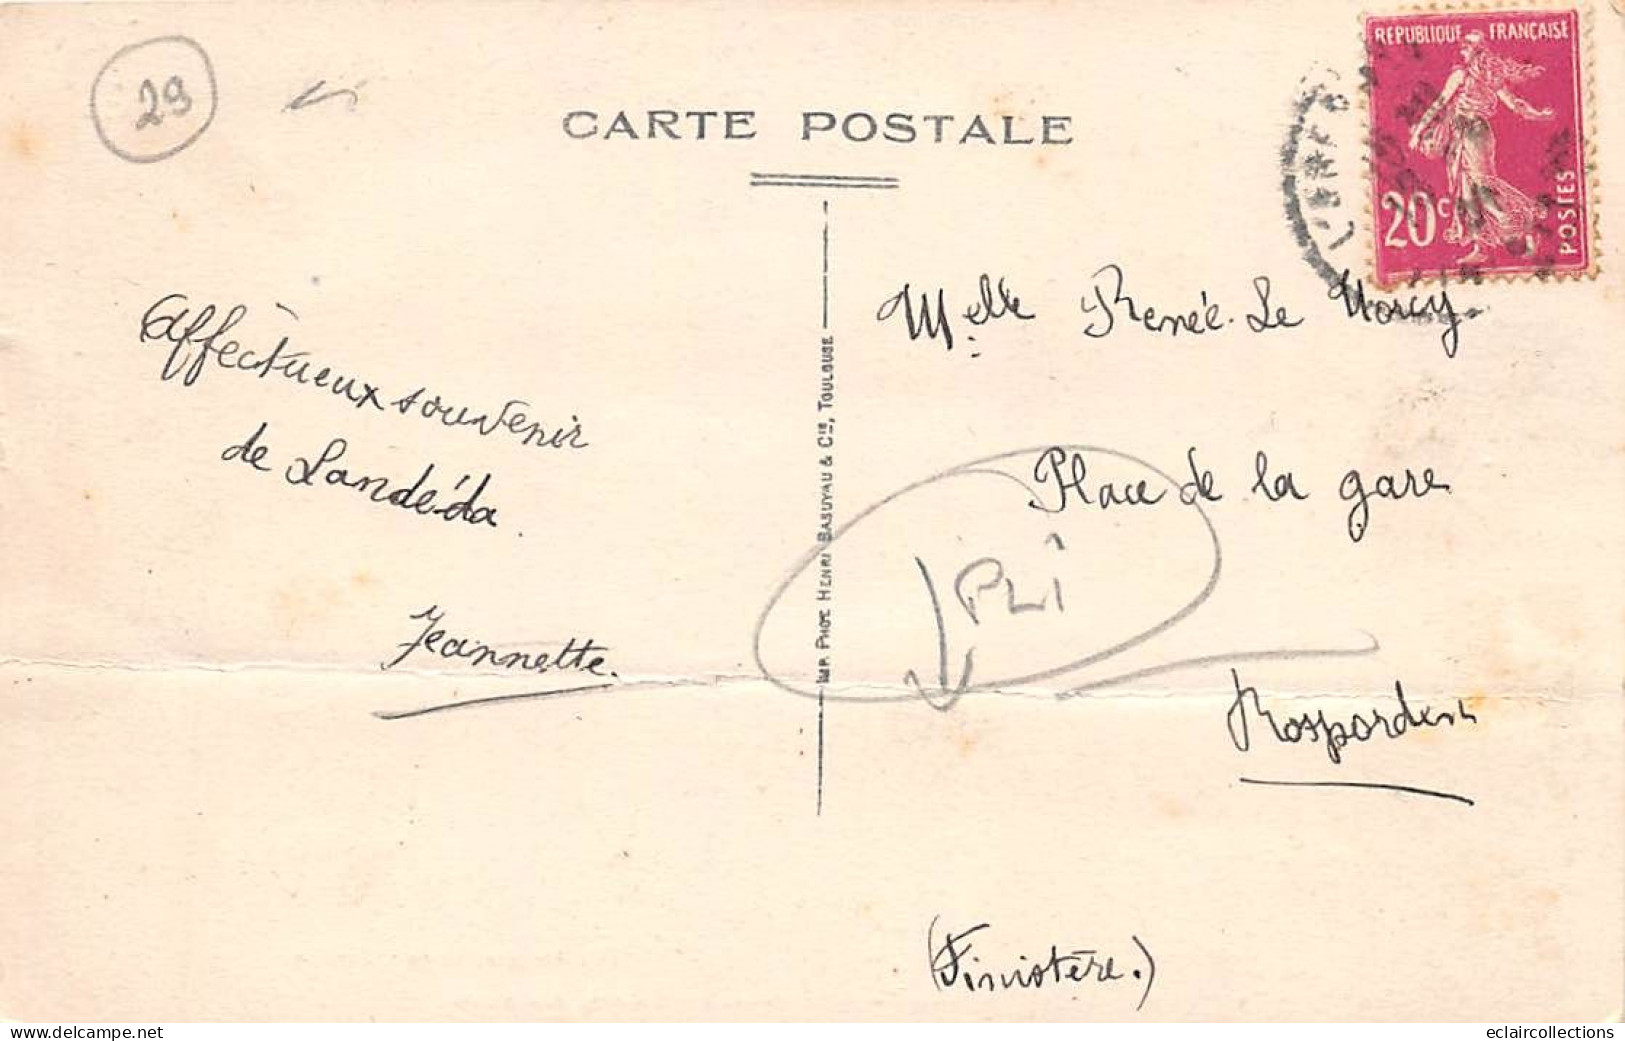 29
CARTE POSTALE
REPUBLIQUE FRANÇAISE
20c
POSTES
Affectueux souvenir
de Landéda
Jeannette.
IMP. PHOT. HENRI BASUYAU & Cie, TOULOUSE
Melle Renée Le Norcy
Place de la gare
PLI
Rosporden
(Finistère.)
eclaircollections